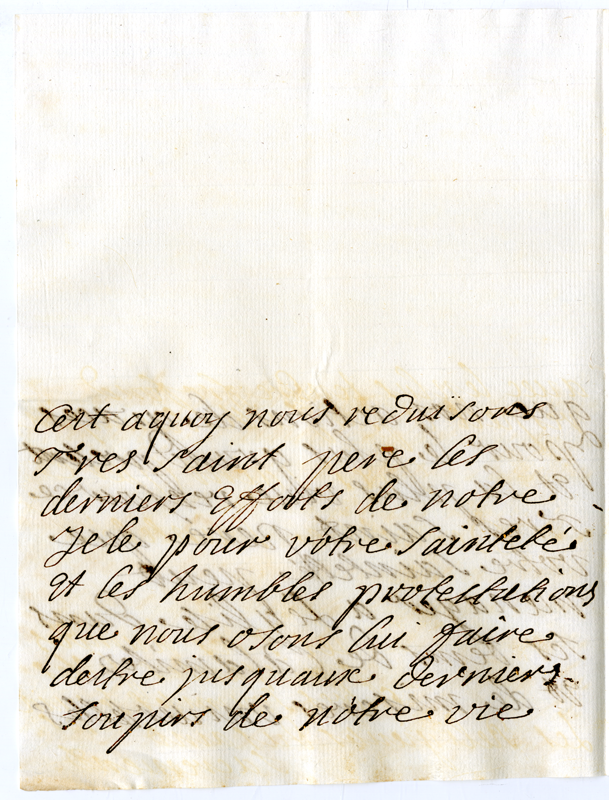 cest aquoy nous reduisons
Tres saint pere les
derniers efforts de notre
Zele pour vôtre sainteté
et les humbles protestations
que nous osons lui faire
destre jusquaux derniers
soupirs de nôtre vie